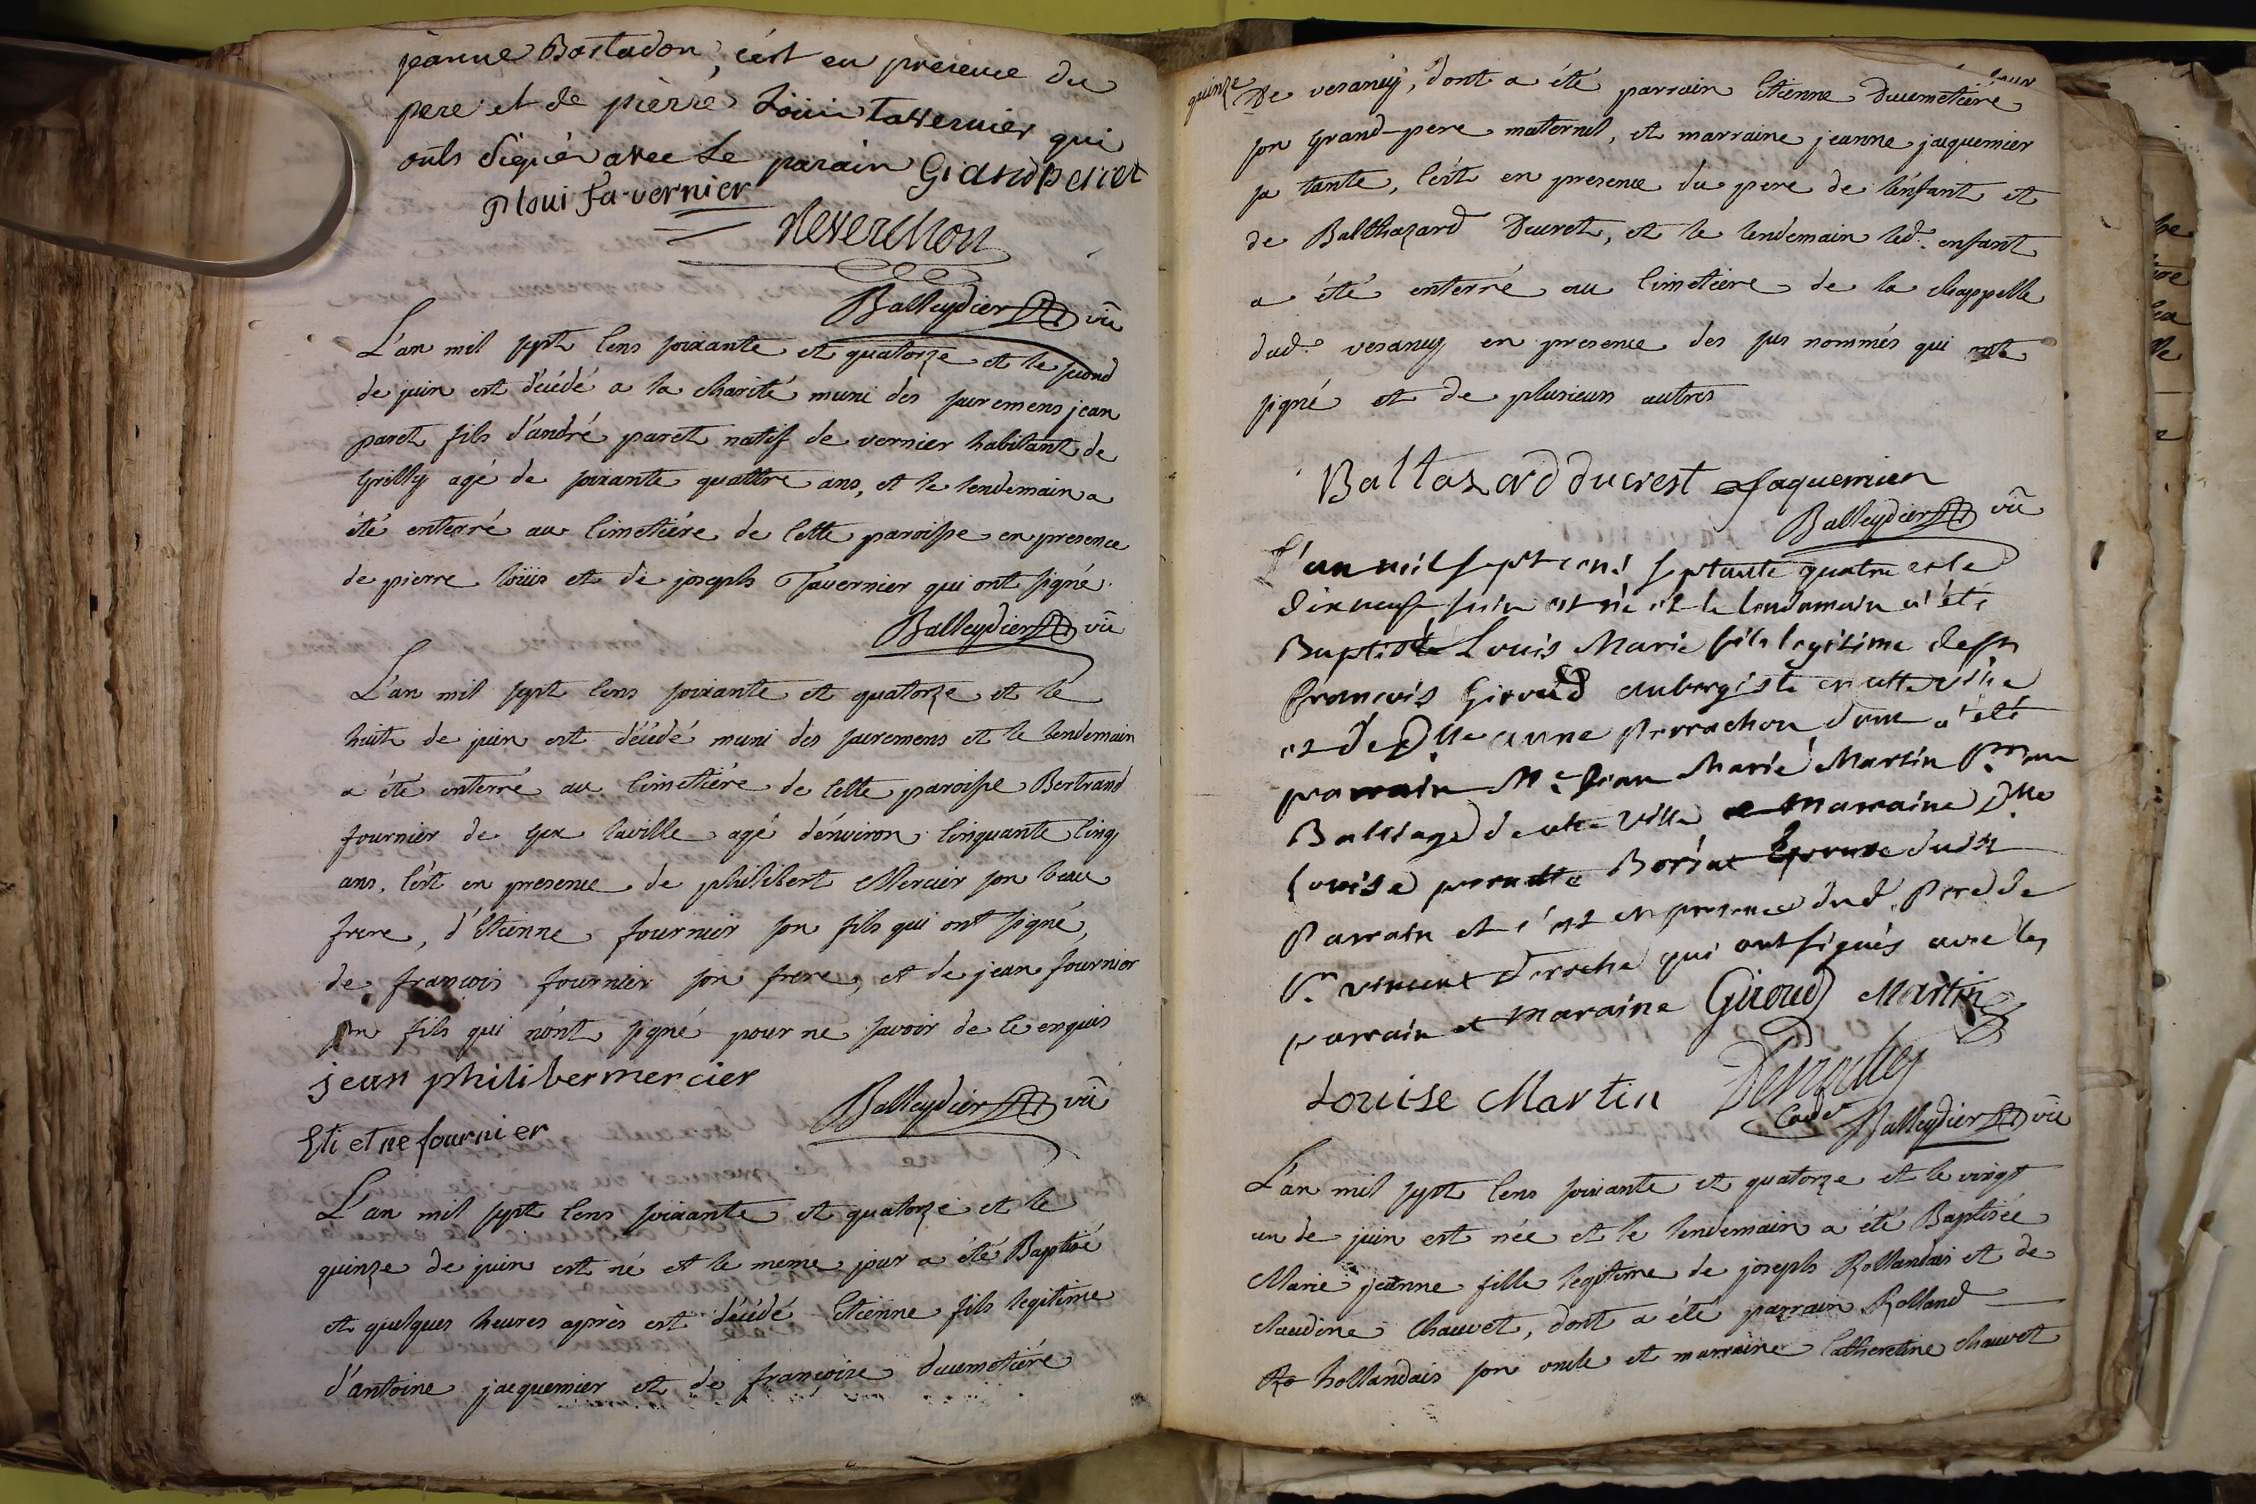 jeanne Bastadon, c'est en présence du
pere et de pierre Loüii Tavernier qui
onts signé avec le parain Grandperret
P loui Ta-vernier
Reverchon
Balleydier vic
L'an mil sept cens soixante et quatorze et le second
de juin est décédé a la charité muni des sacremens jean
paret fils d'andré paret natif de vernier habitant de
grilly agé de soixante quattre ans, et le lendemain a
été enterré au cimetière de cette paroisse en presence
de pierre loüis et de joseph Tavernier qui ont signé.
Balleydier vic
L'an mil sept cens soixante et quatorze et le
huit de juin est décédé muni des sacremens et le lendemain
a été enterré au cimetière de cette paroisse Bertrand
fournier de Gex laville agé d'environ cinquante cinq
ans, c'est en presence de philibert Mercier son beau
frere, d'Etienne fournier son fils qui ont signé,
de françois fournier son frere, et de jean fournier
son fils qui n'ont signé pour ne savoir de ce enquis
jean philibermercier
Balleydier vic
Eti et ne fournier
L'an mil sept cens soixante et quatorze et le
quinze de juin est né et le meme jour a été Baptisé
et quelques heures après est décédé Etienne fils legitime
d'antoine jacquemier et de françoise ducimetière
quinze
De vesancy, dont a été parrain Etienne Ducimetière
son grand-pere maternel, et marraine jeanne jacquemier
sa tante, c'est en presence du pere de l'enfant et
de Balthazard Ducret, et le lendemain led. enfant
a été enterré au cimetiere de la chappelle
dud. vesancy en presence des sus nommés qui ont
signé et de plusieurs autres
Baltazard ducrest Jaquemier
Balleydier vic
L'an mil sept cens septante quatre et le
dix neuf juin est né et le lendemain a été
Baptisé Louis Marie fils legitime de sr
François Giroud aubergiste en cette ville
et de Dlle anne Perrachon dont a été
parrain Me Jean Marie Martin Pr au
Bailliage de cette ville et marraine Dlle
Louise pernette Borsat Epouse dudit
Parrain et c'est en presence dud. Pere de
Sr vincent Deroche qui ont signés avec les
parrain et maraine Giroud Martin
Louise Martin Desroches
Cadet Balleydier vic
L'an mil sept cens soixante et quatorze et le vingt
un de juin est née et le lendemain a été Baptisée
Marie jeanne fille legitime de joseph Rollandais et de
claudine Chauvet, dont a été parrain Rolland
Ro hollandais son oncle et marraine Catherine chauvet